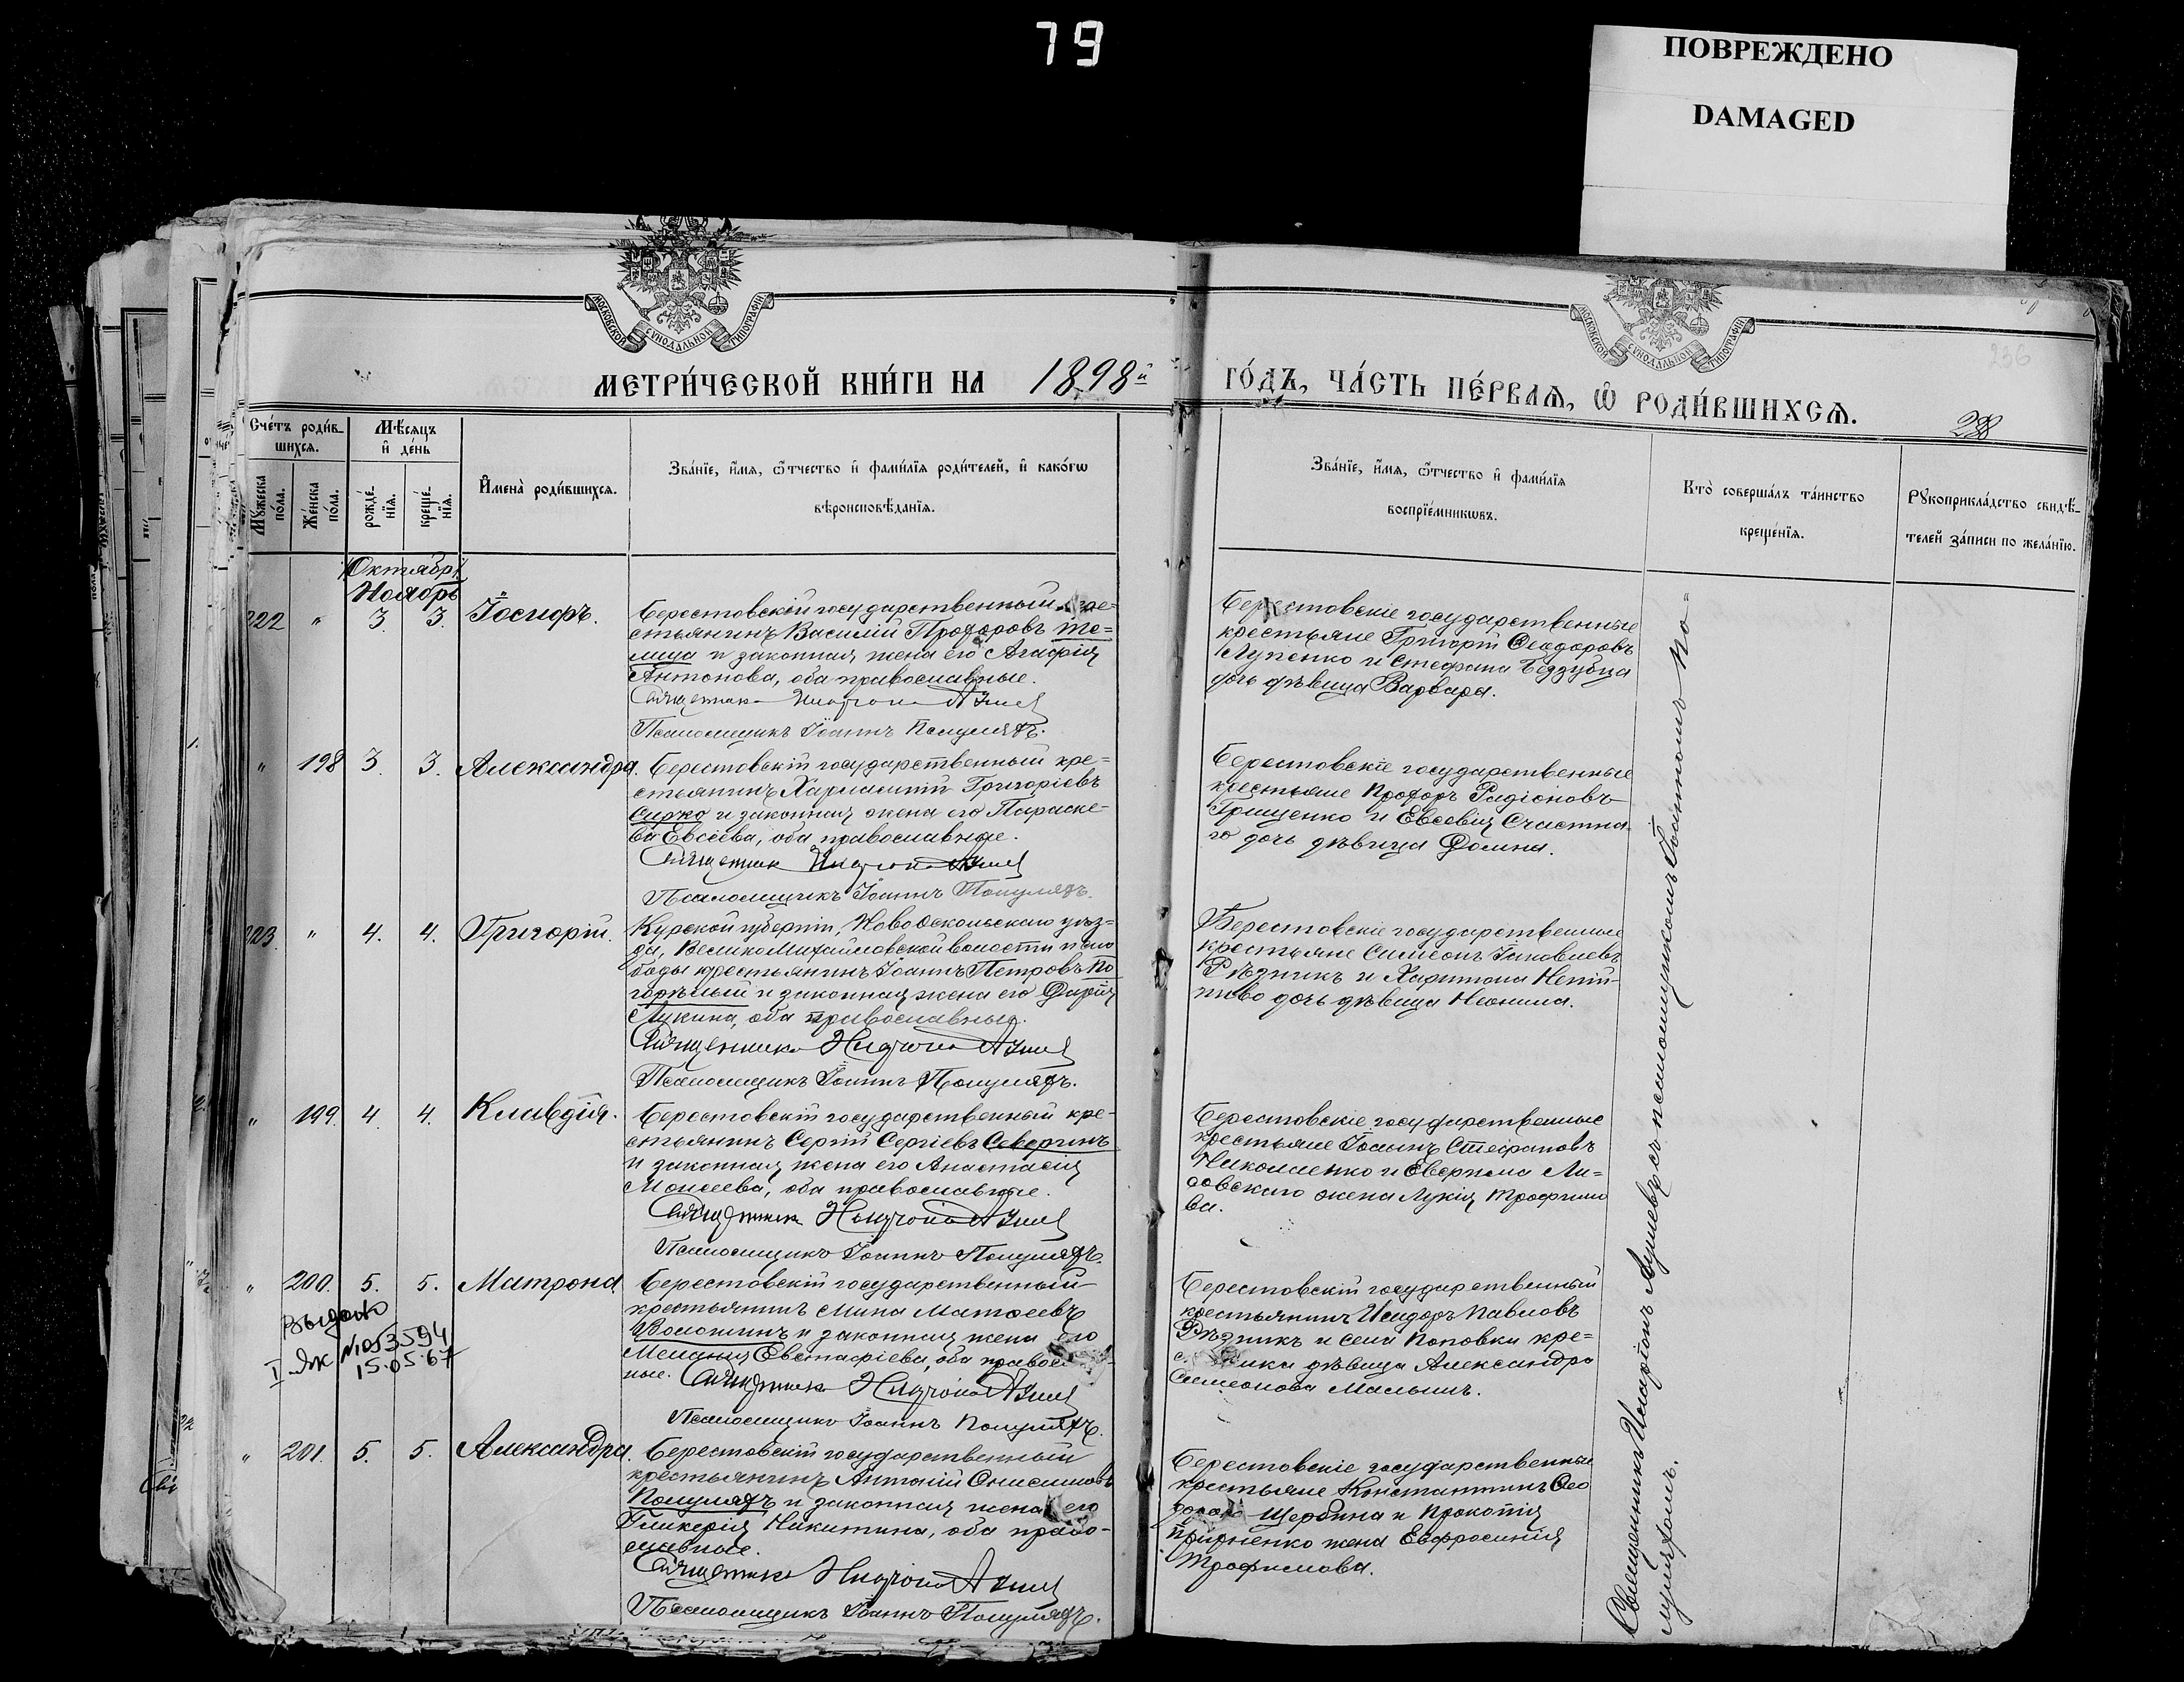 79
ПОВРЕЖДЕНО
DAMAGED
МОСКОВСКОЙ СѴНОДАЛЬНОЙ ТИПОГРАФІИ
МОСКОВСКОЙ СѴНОДАЛЬНОЙ ТИПОГРАФІИ
МЕТРИ́ЧЕСКОЙ КНИ́ГИ НА 1898й
ГО́ДЪ, ЧА́СТЬ ПЕ́РВАѦ, Ѡ РОДИ́ВШИХСѦ.
236
Сче́тъ роди́в-
шихся.
Мѣ́сяцъ
и҆ де́нь
Мꙋ́жеска
по́ла.
Же́нска
по́ла.
рожде́-
нїѧ.
креще́-
нїѧ.
И҆мена̀ роди́вшихсѧ.
Зва́нїе, и҆́мѧ, ѻ҆́тчество и҆ фами́лїѧ роди́телей, и҆ како́гѡ
вѣроисповѣ́данїѧ.
Зва́нїе, и҆́мѧ, ѻ҆́тчество и҆ фами́лїѧ
воспрїе́мникѡвъ.
Кто̀ соверша́лъ та́инство
креще́нїѧ.
Рꙋкоприкла́дство свидѣ́-
телей за́писи по жела́нїю.
Октябрь
Ноябрь
222 " 3. 3. Іосифъ.
Берестовскій государственный кре-
стьянинъ Василій Прохоровъ Те-
лица и законная жена его Агафія
Антонова, оба православные.
Священникъ Иларіонъ
Псаломщикъ Іоаннъ Полулядъ.
Берестовскіе государственные
крестьяне Григорій Ѳеодоровъ
Луценко и Стефана Беззубца
дочь дѣвица Варвара.
" 198 3. 3. Александра.
Берестовскій государственный кре-
стьянинъ Харлампій Григоріевъ
Сирко и законная жена его Параске-
ва Евсеева, оба православные.
Священникъ Иларіонъ
Псаломщикъ Іоаннъ Полулядъ.
Берестовскіе государственные
крестьяне Прохоръ Радіоновъ
Грищенко и Евсевія Счастна-
го дочь дѣвица Домна.
223. " 4. 4. Григорій.
Курской губерніи, Новооскольскаго уѣз-
да, ВеликоМихайловской волости и сло
боды крестьянинъ Іоаннъ Петровъ По
горѣлый и законная жена его Дарія
Лукина, оба православные.
Священникъ Иларіонъ
Псаломщикъ Іоаннъ Полулядъ.
Берестовскіе государственные
крестьяне Симеонъ Іаковлевъ
Рѣзникъ и Харитона
дочь дѣвица Неонила.
" 199. 4. 4. Клавдія.
Берестовскій государственный кре-
стьянинъ Сергій Сергіевъ Севергинъ
и законная жена его Анастасія
Моисеева, оба православные.
Священникъ Иларіонъ
Псаломщикъ Іоаннъ Полулядъ.
Берестовскіе государственные
крестьяне Іоаннъ Стефановъ
Николаенко и Ли-
совскаго жена Лукія Трофимо
ва.
" 200. 5. 5. Матрона.
Выдано
I ЯК №053594
15.05.67
Берестовскій государственный
крестьянинъ Мина Матѳеевъ
Волошинъ и законная жена его
Меланія Евстафіева, оба правосл
ные. Священникъ Иларіонъ
Псаломщикъ Іоаннъ Полулядъ.
Берестовскій государственный
крестьянинъ Исидоръ Павловъ
Рѣзникъ и села Поповки кре-
дѣвица Александра
Симеонова Малышъ.
" 201. 5. 5. Александра.
Берестовскій государственный
крестьянинъ Антоній Онисимовъ
Полулядъ и законная жена его
Гликерія Никитина, оба право-
славные.
Священникъ Иларіонъ
Псаломщикъ Іоаннъ Полулядъ.
Берестовскіе государственные
крестьяне Константинъ Ѳео
доровъ Щербина и Прокопія
жена Евфросинія
Трофимова.
Священникъ Иларіонъ съ псаломщикомъ Іоанномъ По-
лулядомъ.